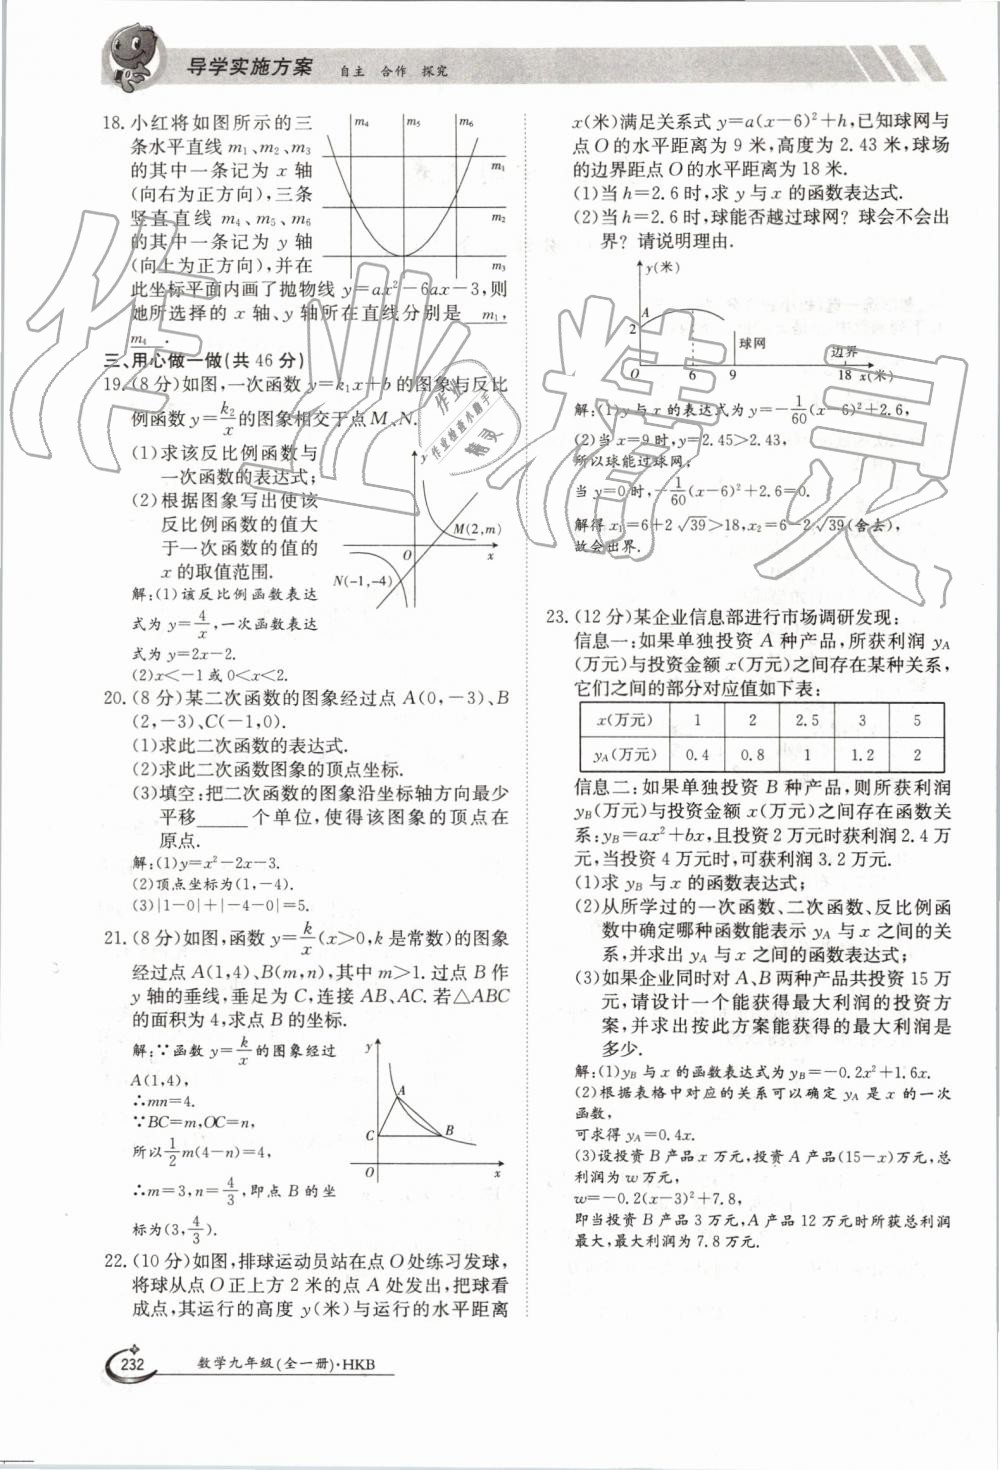 导学实施方案 自主 合作 探究
18.小红将如图所示的三
条水平直线 m₁、m₂、m₃
的其中一条记为 x 轴
(向右为正方向),三条
竖直直线 m₄、m₅、m₆
的其中一条记为 y 轴
(向上为正方向),并在
此坐标平面内画了抛物线 y=ax²-6ax-3,则
她所选择的 x 轴、y 轴所在直线分别是 m₁,
m₄ .
m₄ m₅ m₆
m₁
m₂
m₃
三、用心做一做(共 46 分)
19.(8 分)如图,一次函数 y=k₁x+b 的图象与反比
例函数 y=k₂/x 的图象相交于点 M、N.
(1)求该反比例函数与
一次函数的表达式;
(2)根据图象写出使该
反比例函数的值大
于一次函数的值的
x 的取值范围.
y
M(2,m)
O x
N(-1,-4)
解:(1)该反比例函数表达
式为 y=4/x,一次函数表达
式为 y=2x-2.
(2)x<-1 或 0<x<2.
20.(8 分)某二次函数的图象经过点 A(0,-3)、B
(2,-3)、C(-1,0).
(1)求此二次函数的表达式.
(2)求此二次函数图象的顶点坐标.
(3)填空:把二次函数的图象沿坐标轴方向最少
平移______个单位,使得该图象的顶点在
原点.
解:(1)y=x²-2x-3.
(2)顶点坐标为(1,-4).
(3)|1-0|+|-4-0|=5.
21.(8 分)如图,函数 y=k/x(x>0,k 是常数)的图象
经过点 A(1,4)、B(m,n),其中 m>1.过点 B 作
y 轴的垂线,垂足为 C,连接 AB、AC.若△ABC
的面积为 4,求点 B 的坐标.
解:∵函数 y=k/x 的图象经过
A(1,4),
∴mn=4.
∵BC=m,OC=n,
所以 1/2 m(4-n)=4,
∴m=3,n=4/3,即点 B 的坐
标为(3,4/3).
y
A
C B
O x
22.(10 分)如图,排球运动员站在点 O 处练习发球,
将球从点 O 正上方 2 米的点 A 处发出,把球看
成点,其运行的高度 y(米)与运行的水平距离
x(米)满足关系式 y=a(x-6)²+h,已知球网与
点 O 的水平距离为 9 米,高度为 2.43 米,球场
的边界距点 O 的水平距离为 18 米.
(1)当 h=2.6 时,求 y 与 x 的函数表达式.
(2)当 h=2.6 时,球能否越过球网? 球会不会出
界? 请说明理由.
y(米)
A
2
球网 边界
O 6 9 18 x(米)
解:(1)y 与 x 的表达式为 y=-1/60(x-6)²+2.6,
(2)当 x=9 时,y=2.45>2.43,
所以球能过球网;
当 y=0 时,-1/60(x-6)²+2.6=0.
解得 x₁=6+2√39>18,x₂=6-2√39(舍去),
故会出界.
23.(12 分)某企业信息部进行市场调研发现:
信息一:如果单独投资 A 种产品,所获利润 yA
(万元)与投资金额 x(万元)之间存在某种关系,
它们之间的部分对应值如下表:
x(万元) 1 2 2.5 3 5
yA(万元) 0.4 0.8 1 1.2 2
信息二:如果单独投资 B 种产品,则所获利润
yB(万元)与投资金额 x(万元)之间存在函数关
系:yB=ax²+bx,且投资 2 万元时获利润 2.4 万
元,当投资 4 万元时,可获利润 3.2 万元.
(1)求 yB 与 x 的函数表达式;
(2)从所学过的一次函数、二次函数、反比例函
数中确定哪种函数能表示 yA 与 x 之间的关
系,并求出 yA 与 x 之间的函数表达式;
(3)如果企业同时对 A、B 两种产品共投资 15 万
元,请设计一个能获得最大利润的投资方
案,并求出按此方案能获得的最大利润是
多少.
解:(1)yB 与 x 的函数表达式为 yB=-0.2x²+1.6x.
(2)根据表格中对应的关系可以确定 yA 是 x 的一次
函数,
可求得 yA=0.4x.
(3)设投资 B 产品 x 万元,投资 A 产品(15-x)万元,总
利润为 w 万元,
w=-0.2(x-3)²+7.8,
即当投资 B 产品 3 万元,A 产品 12 万元时所获总利润
最大,最大利润为 7.8 万元.
作业精灵
作业
作业检查小助手
精灵
232 数学九年级(全一册)·HKB